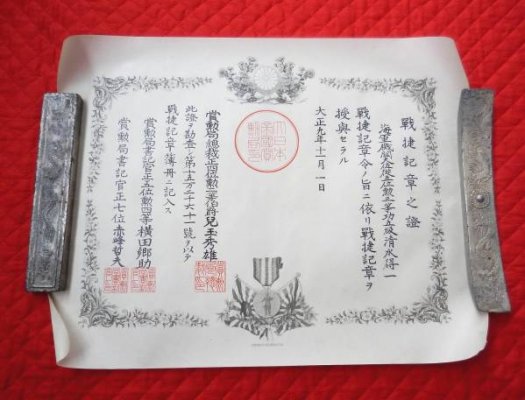 戰捷記章之證
海軍機關 位勲三等功五級清水
戰捷記章令ノ旨ニ依リ戰捷記章ヲ
授與セラル
大正九年十一月一日
大日本
賞勲局總裁正四位勲二等伯爵兒玉秀雄
此證ヲ勘査シ第十五万二千六十一號ヲ以テ
戰捷記章簿冊ニ記入ス
賞勲局書記官正五位勲四等横田郷助
賞勲局書記官正七位赤峰哲夫